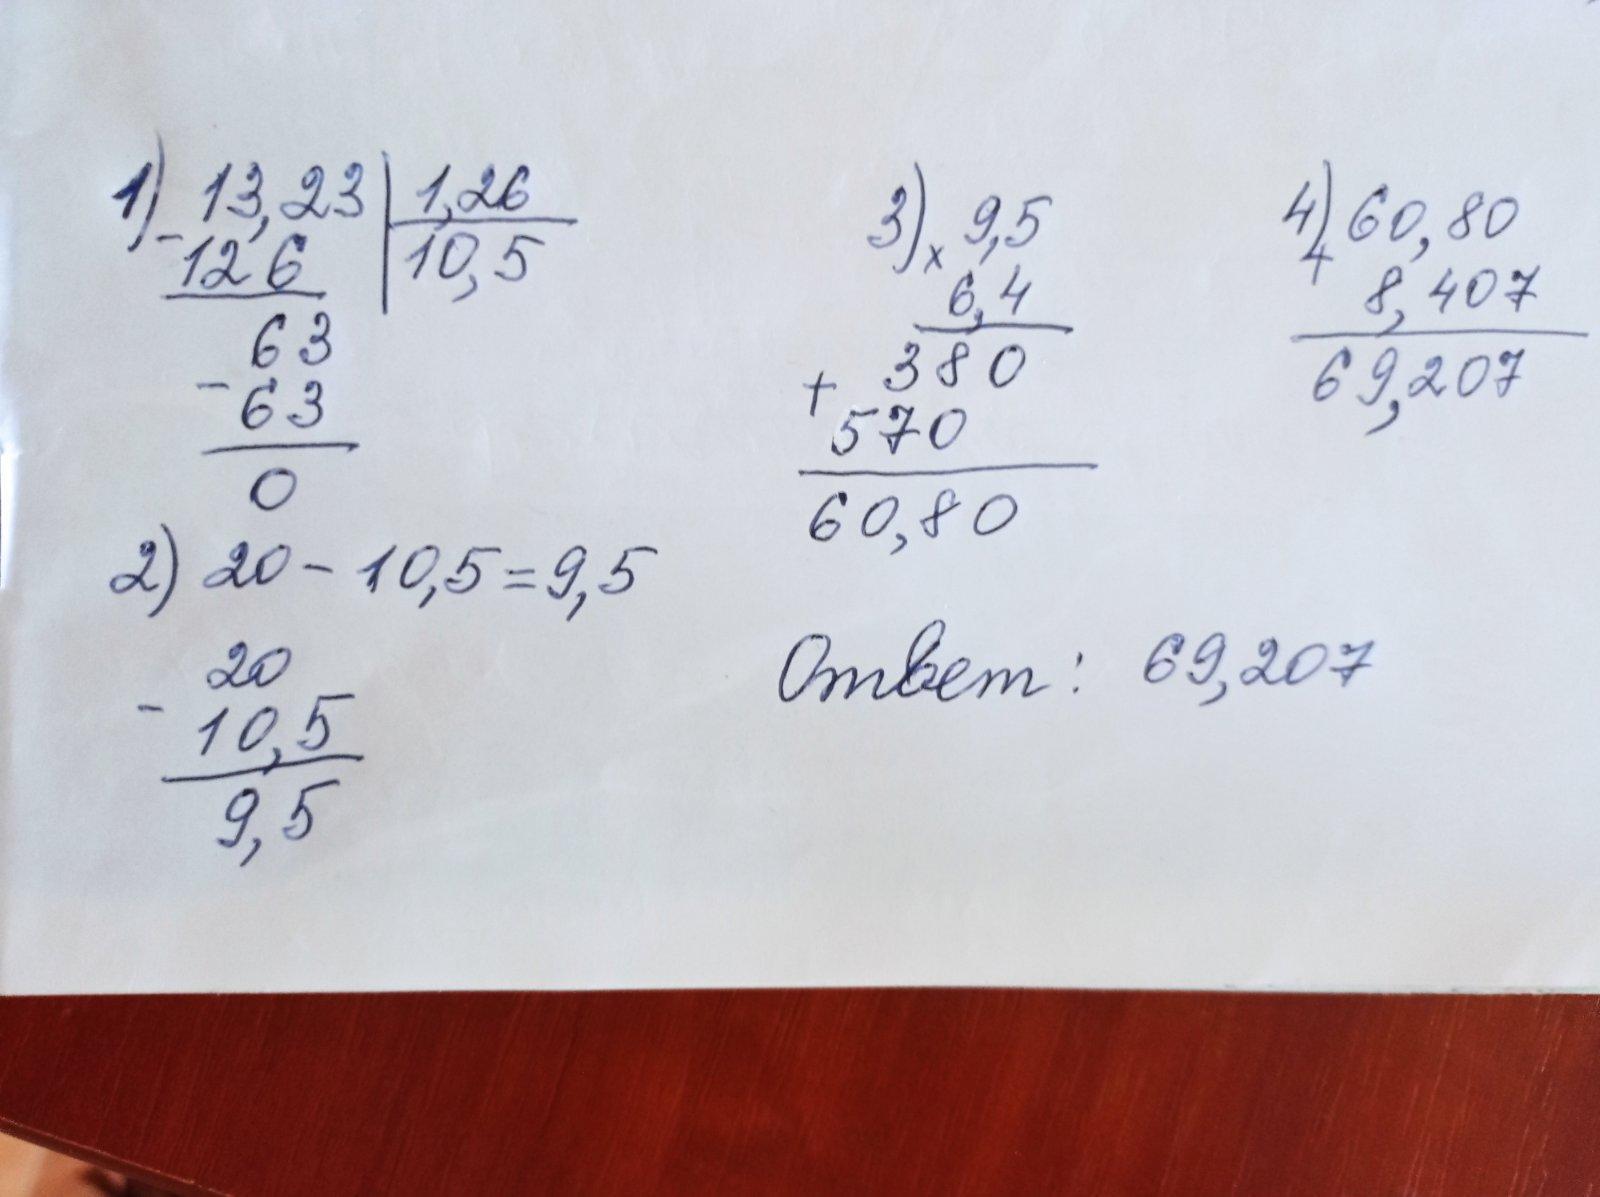 1) 13,23 | 1,26
- 126 | 10,5
63
- 63
0
2) 20 - 10,5 = 9,5
20
- 10,5
9,5
3) 9,5
× 6,4
380
+ 570
60,80
4) 60,80
+ 8,407
69,207
Ответ: 69,207